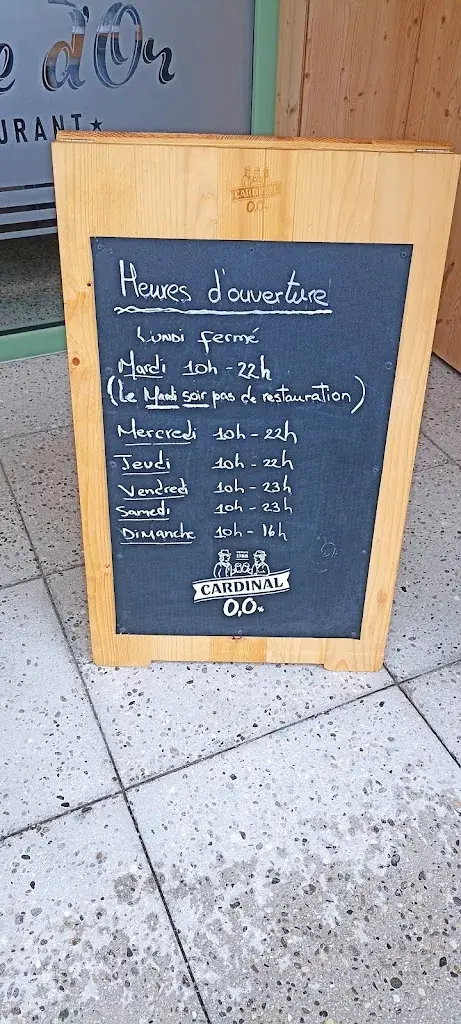 e d'Or
URANT★
CARDINAL
0,0%
Heures d'ouverture
Lundi fermé
Mardi 10h - 22h
(Le Mardi soir pas de restauration)
Mercredi 10h - 22h
Jeudi 10h - 22h
Vendredi 10h - 23h
Samedi 10h - 23h
Dimanche 10h - 16h
CARDINAL
0,0%